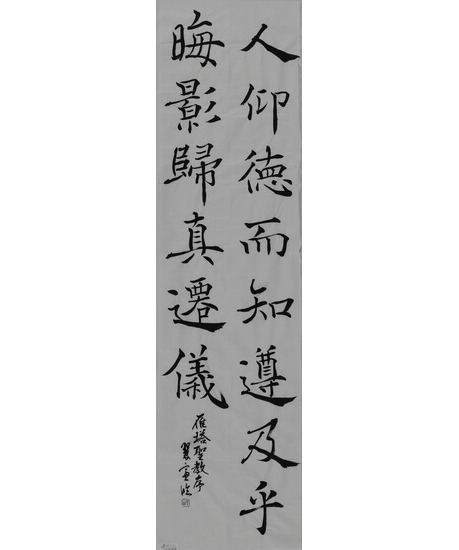 人仰德而知遵及乎
晦影歸真遷儀
雁塔聖教序